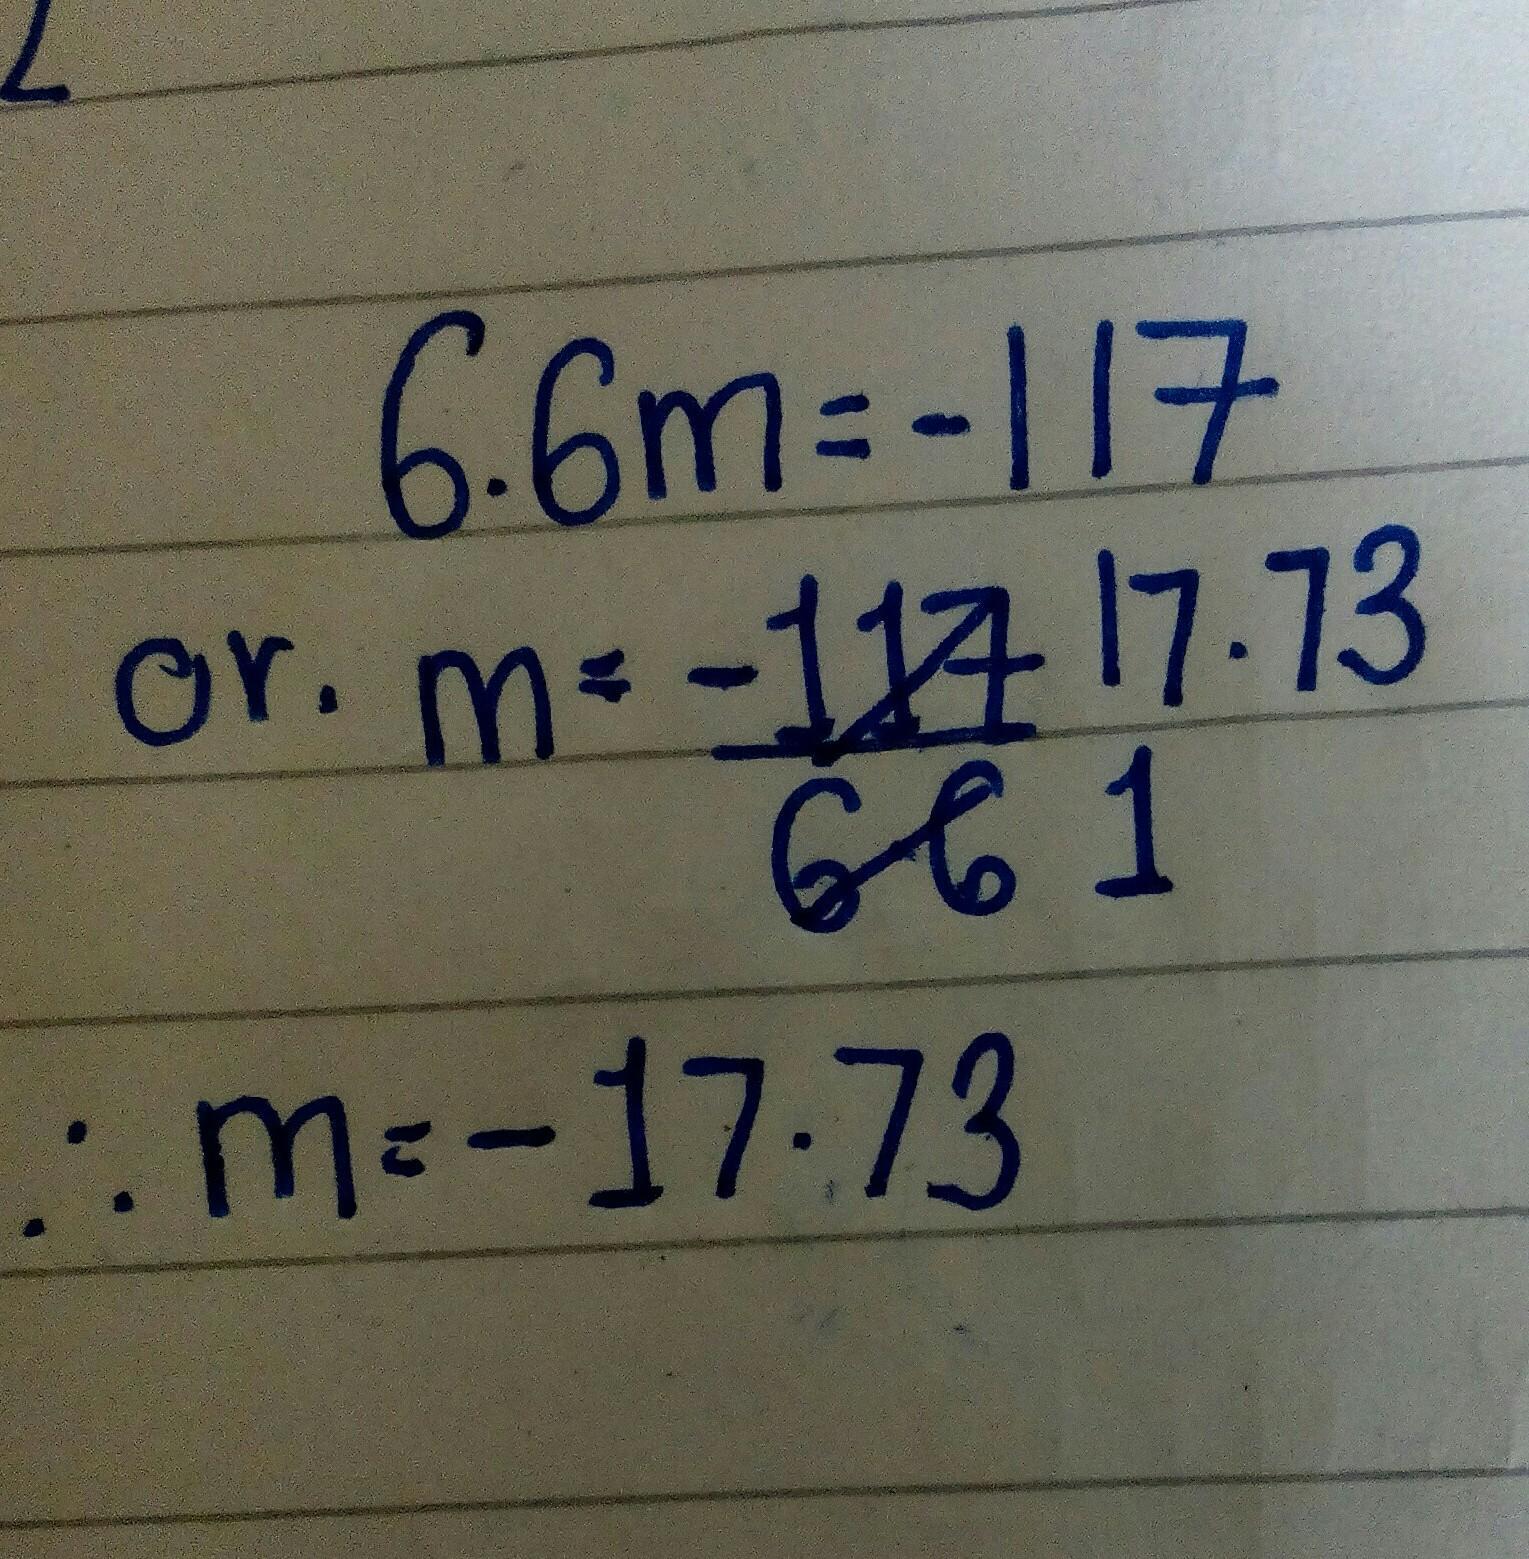 6.6m=-117
or. m= -117 17.73
6.6 1
∴ m= -17.73